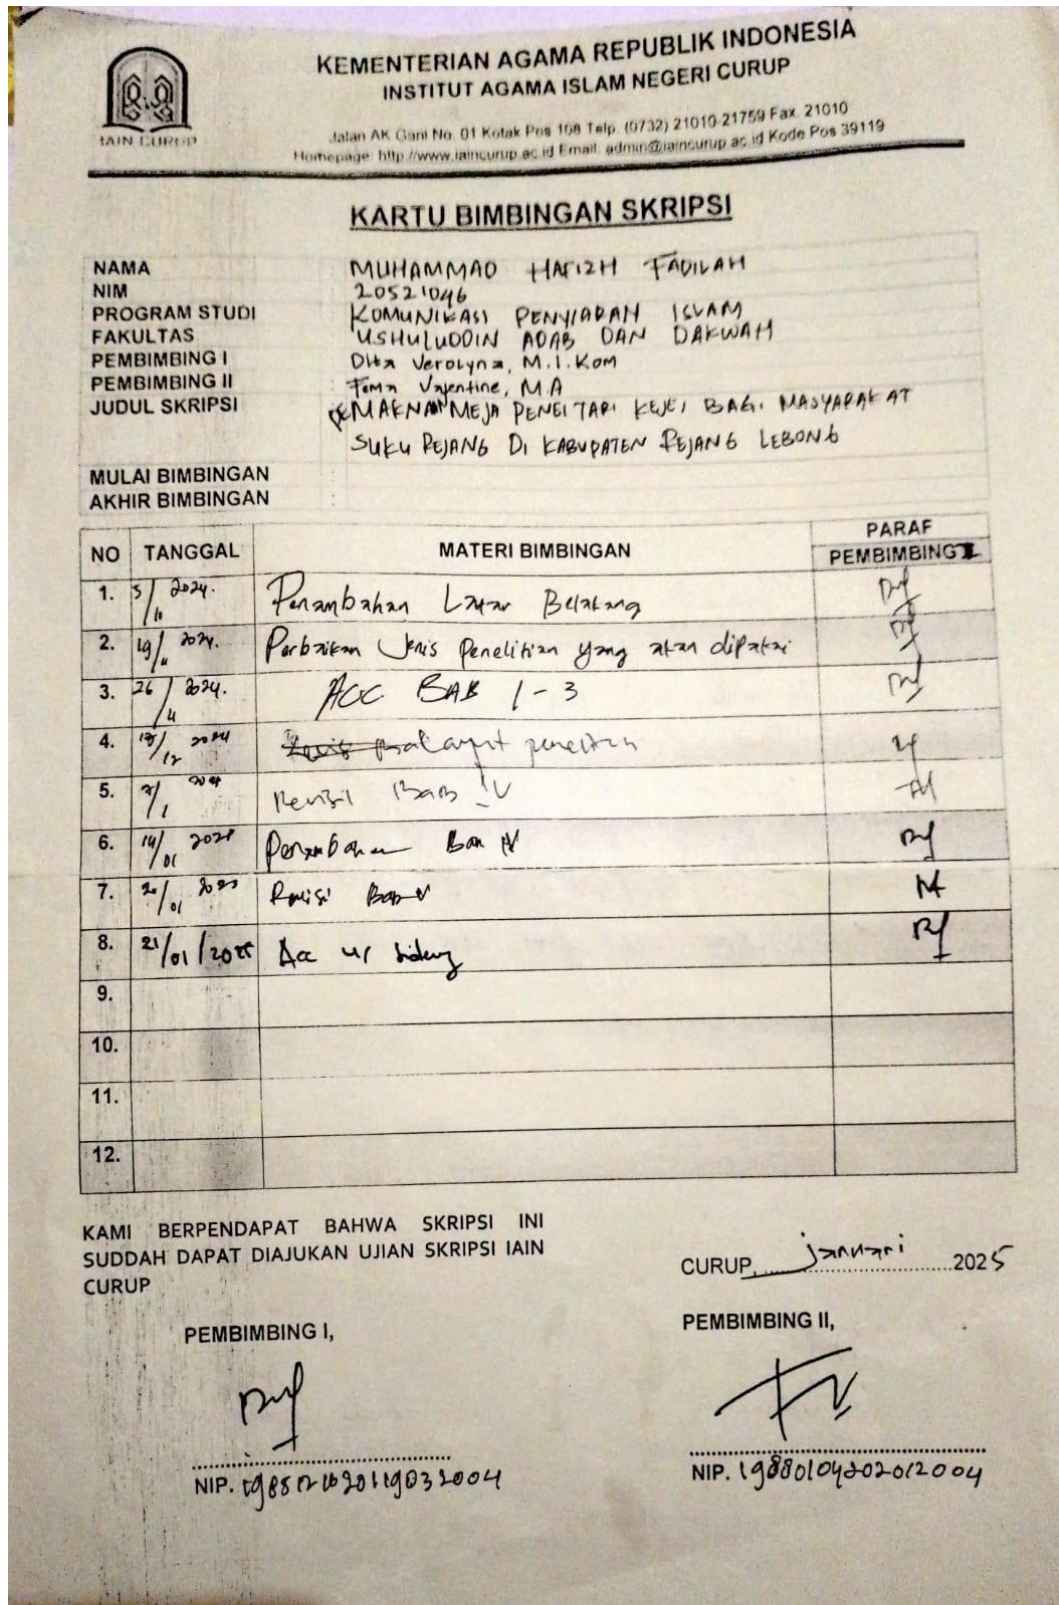 KEMENTERIAN AGAMA REPUBLIK INDONESIA
INSTITUT AGAMA ISLAM NEGERI CURUP
Jalan AK Gani No. 01 Kotak Pos 108 Telp. (0732) 21010-21759 Fax. 21010
Homepage: http://www.iaincurup.ac.id Email: admin@iaincurup.ac.id Kode Pos 39119
IAIN CURUP
KARTU BIMBINGAN SKRIPSI
NAMA MUHAMMAD HAFIZH FADILAH
NIM 20521046
PROGRAM STUDI KOMUNIKASI PENYIARAN ISLAM
FAKULTAS USHULUDDIN ADAB DAN DAKWAH
PEMBIMBING I Dita Verolyna, M.I.Kom
PEMBIMBING II Femi Valentine, M.A
JUDUL SKRIPSI PEMAKNAAN MEJA PENEI TARI KEJEI BAGI MASYARAKAT
SUKU REJANG DI KABUPATEN REJANG LEBONG
MULAI BIMBINGAN
AKHIR BIMBINGAN :
NO TANGGAL MATERI BIMBINGAN PARAF
PEMBIMBING I
1. 5/11 2024. Penambahan Latar Belakang
2. 19/11 2024. Perbaikan Jenis Penelitian yang akan dipakai
3. 26/11 2024. ACC BAB 1-3
4. /12 2024 penelitian
5. /1 Revisi Bab IV
6. 14/01 Penambahan Bab IV
7. /01 Revisi Bab V
8. 21/01/2025 Acc sidang
9.
10.
11.
12.
KAMI BERPENDAPAT BAHWA SKRIPSI INI
SUDDAH DAPAT DIAJUKAN UJIAN SKRIPSI IAIN
CURUP
CURUP, januari 2025
PEMBIMBING I,
PEMBIMBING II,
NIP. 198512162019032004
NIP. 198801042020122004